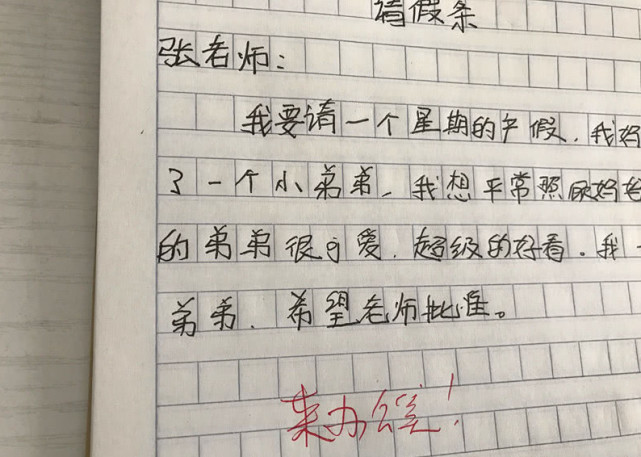 请假条
张老师：
我要请一个星期的产假，我妈
了一个小弟弟，我想平常照顾妈妈
的弟弟很可爱，超级的好看。我
弟弟，希望老师批准。
来办公室！